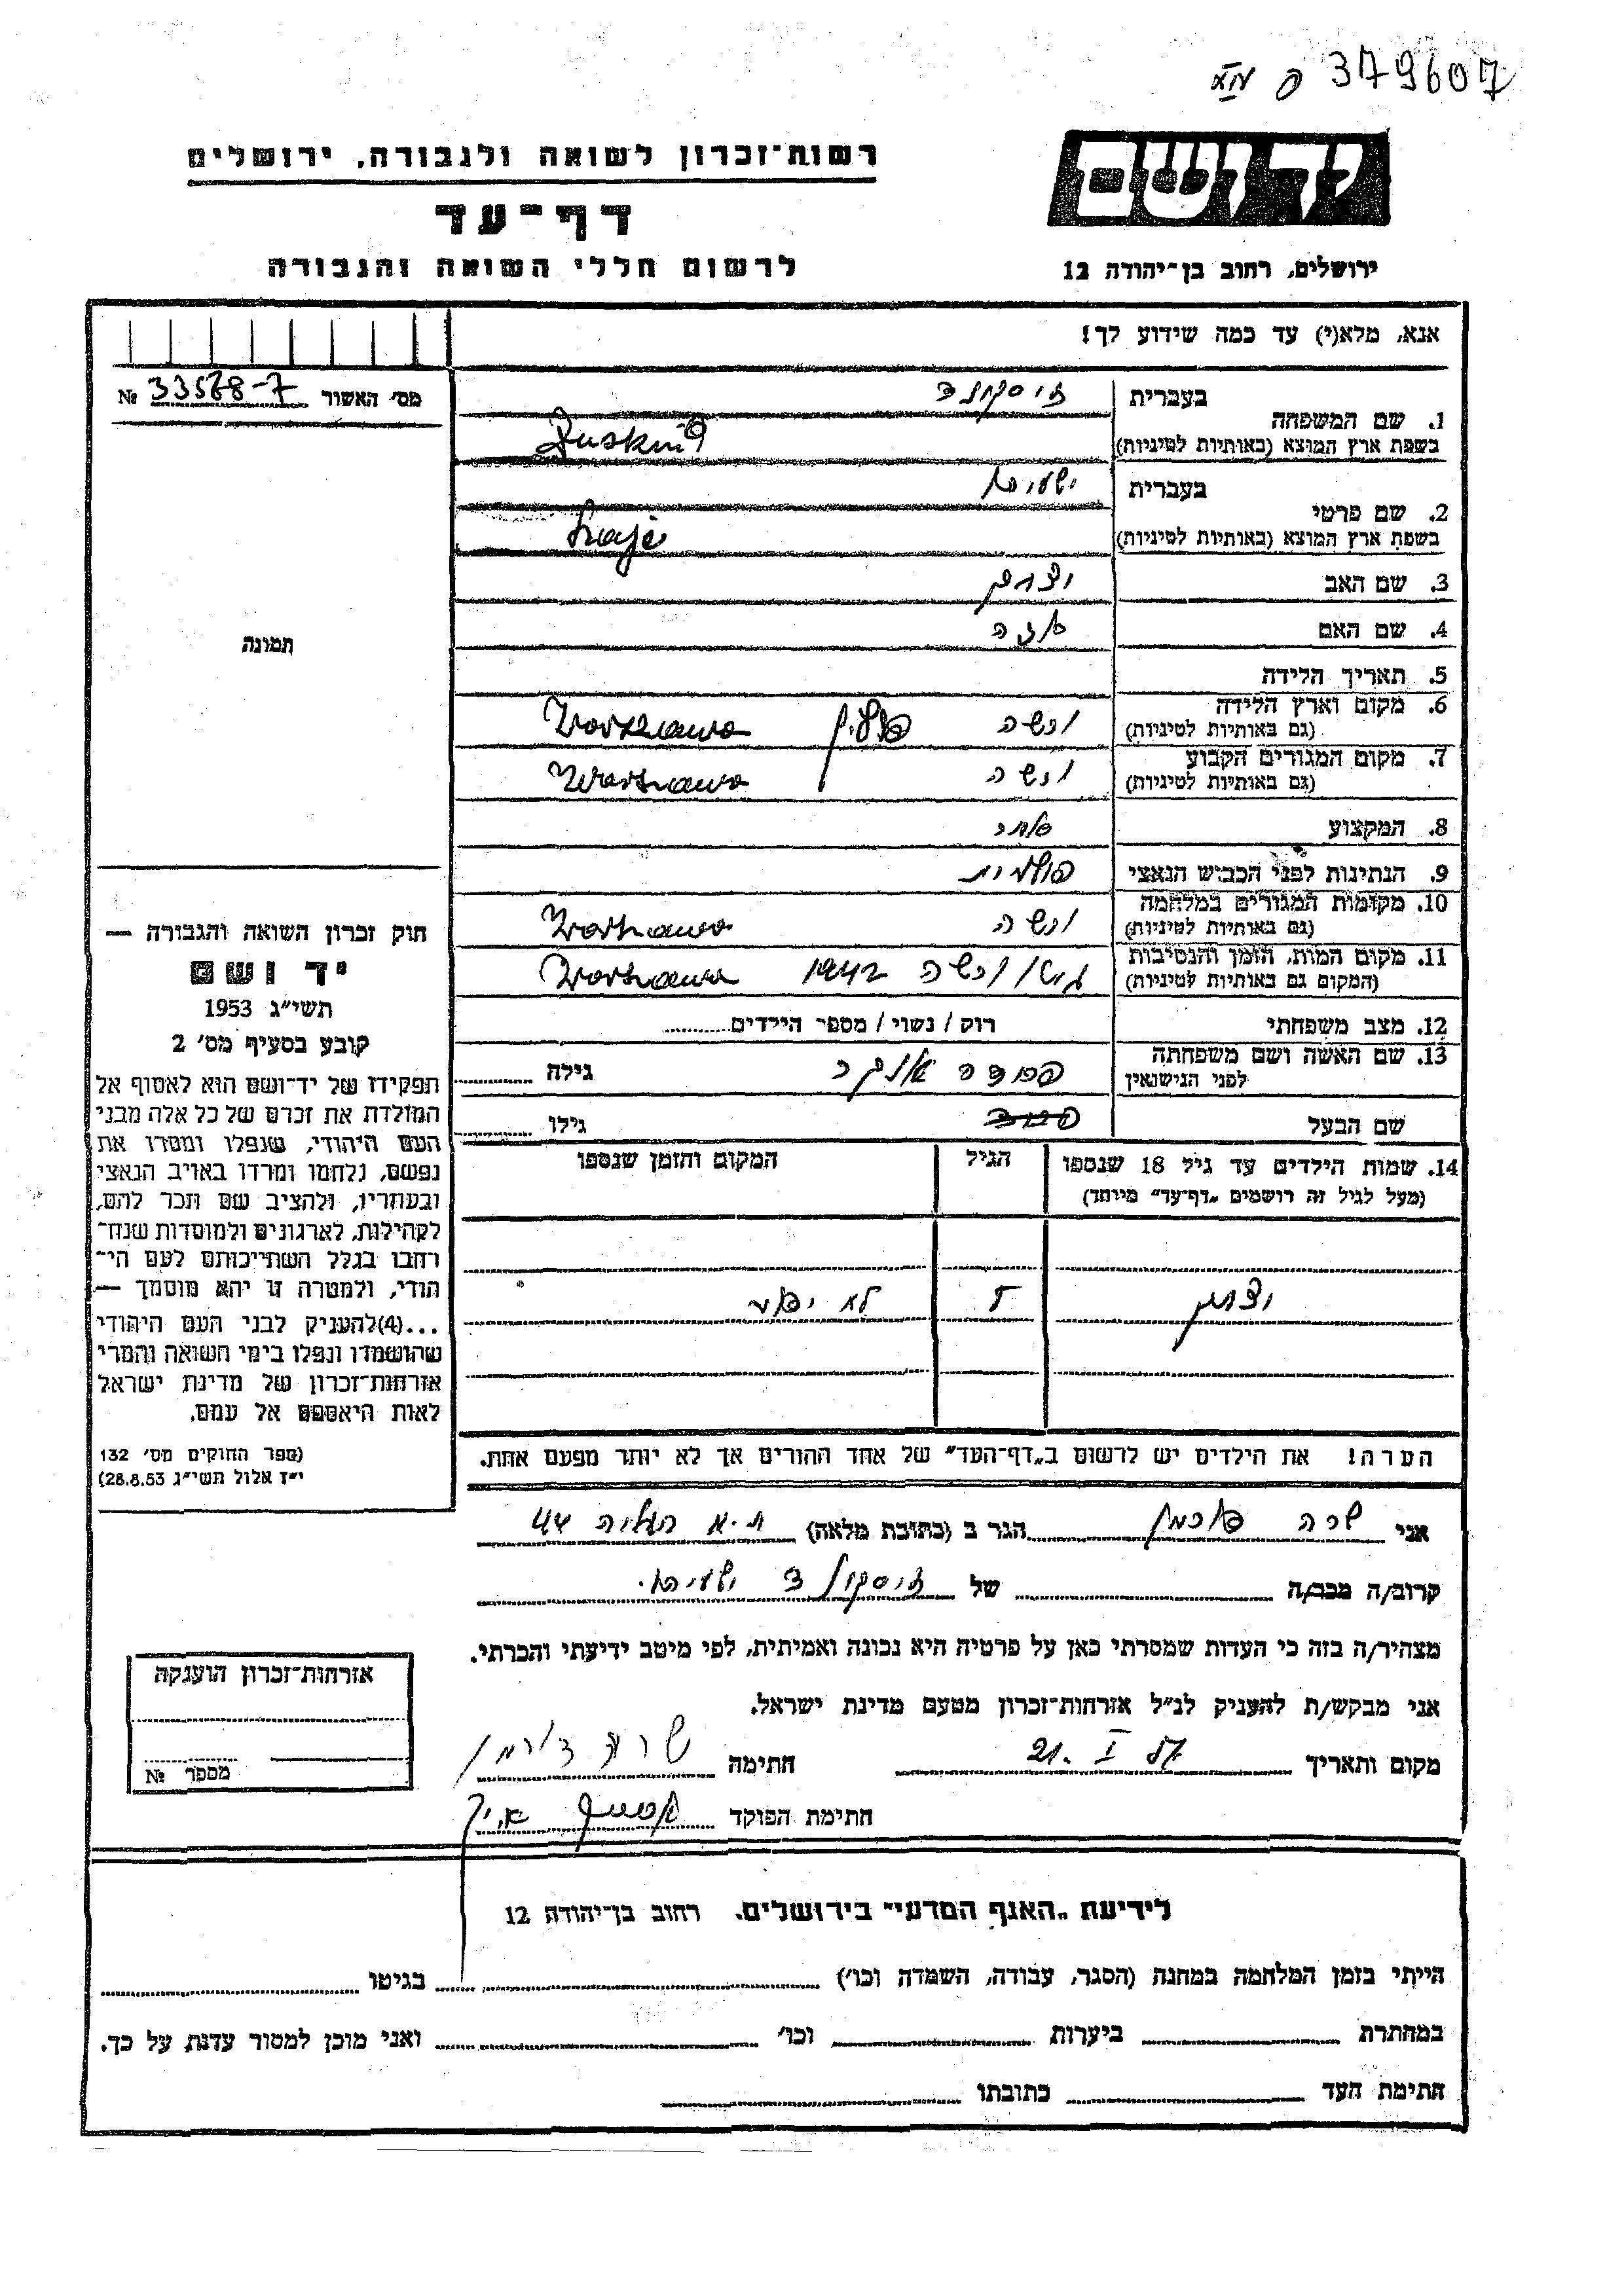 379607
רשות־זכרון לשואה ולגבורה, ירושלים
יד ושם
דף־עד
לרשום חללי השואה והגבורה
ירושלים, רחוב בן־יהודה 12
אנא, מלא(י) עד כמה שידוע לך!
מס׳ האשור № 33568-7
1. שם המשפחה
בעברית
בשפת ארץ המוצא (באותיות לטיניות)
2. שם פרטי
בעברית ישעיהו
בשפת ארץ המוצא (באותיות לטיניות)
3. שם האב יצחק
4. שם האם
תמונה
5. תאריך הלידה
6. מקום וארץ הלידה ורשה פולין Warszawa
(גם באותיות לטיניות)
7. מקום המגורים הקבוע ורשה Warszawa
(גם באותיות לטיניות)
8. המקצוע
9. הנתינות לפני הכבוש הנאצי פולנית
10. מקומות המגורים במלחמה ורשה Warszawa
(גם באותיות לטיניות)
11. מקום המות, הזמן והנסיבות גטו ורשה 1942 Warszawa
(המקום גם באותיות לטיניות)
12. מצב משפחתי רוק / נשוי / מספר הילדים
13. שם האשה ושם משפחתה
לפני הנישואין גילה
שם הבעל גילו
14. שמות הילדים עד גיל 18 שנספו הגיל המקום והזמן שנספו
(מעל לגיל זה רושמים „דף־עד" מיוחד)
יצחק לא ידוע
הערה! את הילדים יש לרשום ב„דף־העד" של אחד ההורים אך לא יותר מפעם אחת.
חוק זכרון השואה והגבורה —
יד ושם
תשי״ג 1953
קובע בסעיף מס׳ 2
תפקידו של יד־ושם הוא לאסוף אל
המולדת את זכרם של כל אלה מבני
העם היהודי, שנפלו ומסרו את
נפשם, נלחמו ומרדו באויב הנאצי
ובעוזריו, ולהציב שם וזכר להם,
לקהילות, לארגונים ולמוסדות שנח־
רבו בגלל השתייכותם לעם הי־
הודי, ולמטרה זו יהא מוסמך —
...(4)להעניק לבני העם היהודי
שהושמדו ונפלו בימי השואה והמרי
אזרחות־זכרון של מדינת ישראל
לאות היאספם אל עמם.
(ספר החוקים מס׳ 132
י״ז אלול תשי״ג 28.8.53)
אני שרה הגר ב (כתובת מלאה) ת.א 44
קרוב/ה מכר/ה של ישעיהו
מצהיר/ה בזה כי העדות שמסרתי כאן על פרטיה היא נכונה ואמיתית, לפי מיטב ידיעתי והכרתי.
אני מבקש/ת להעניק לנ״ל אזרחות־זכרון מטעם מדינת ישראל.
מקום ותאריך 21. I חתימה שרה
חתימת הפוקד
אזרחות־זכרון הוענקה
מספר №
לידיעת „האגף המדעי" בירושלים. רחוב בן־יהודה 12
הייתי בזמן המלחמה במחנה (הסגר, עבודה, השמדה וכו׳) בגיטו
במחתרת ביערות וכו׳ ואני מוכן למסור עדות על כך.
חתימת העד כתובתו